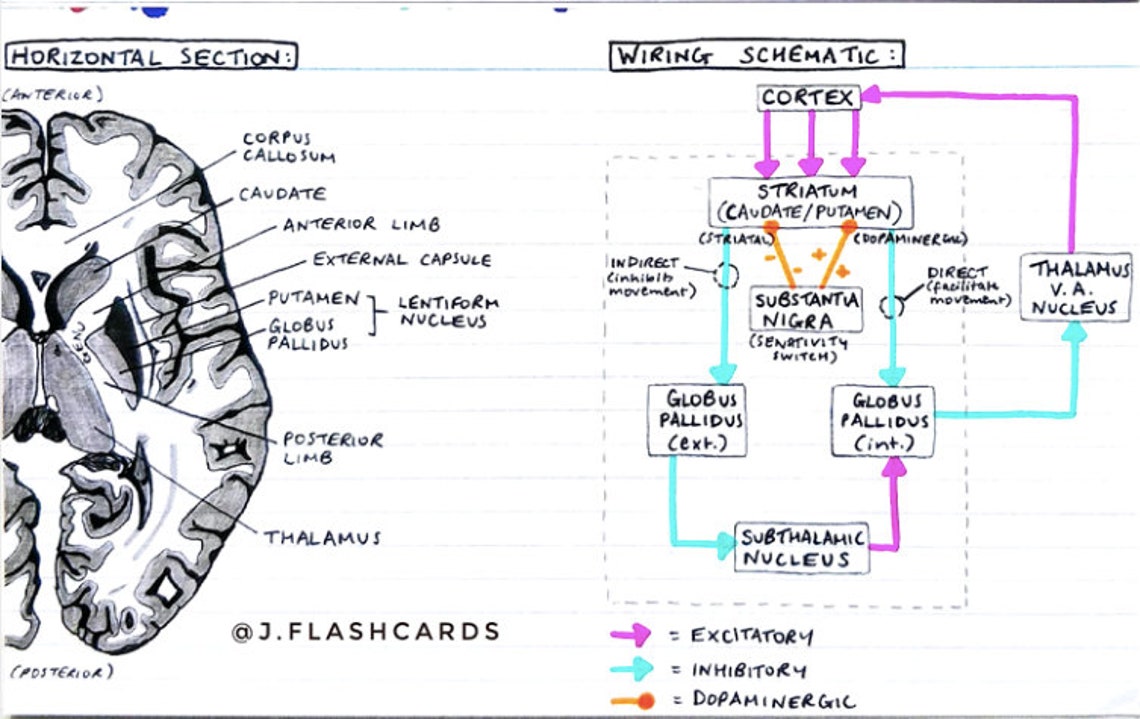 HORIZONTAL SECTION:
(ANTERIOR)
CORPUS
CALLOSUM
CAUDATE
ANTERIOR LIMB
EXTERNAL CAPSULE
PUTAMEN
GLOBUS
PALLIDUS
LENTIFORM
NUCLEUS
GENU
POSTERIOR
LIMB
THALAMUS
(POSTERIOR)
@J.FLASHCARDS
WIRING SCHEMATIC:
CORTEX
STRIATUM
(CAUDATE/PUTAMEN)
(STRIATAL)
(DOPAMINERGIC)
INDIRECT
(inhibits
movement)
- -
+ +
DIRECT
(facilitate
movement)
SUBSTANTIA
NIGRA
(SENATIVITY
SWITCH)
THALAMUS
V.A.
NUCLEUS
GLOBUS
PALLIDUS
(ext.)
GLOBUS
PALLIDUS
(int.)
SUBTHALAMIC
NUCLEUS
= EXCITATORY
= INHIBITORY
= DOPAMINERGIC